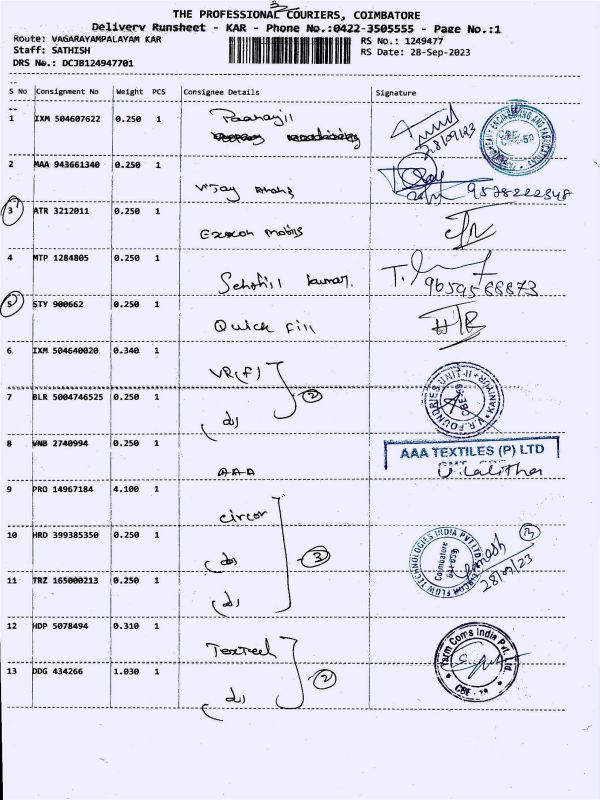 THE PROFESSIONAL COURIERS, COIMBATORE
Delivery Runsheet - KAR - Phone No.:0422-3505555 - Page No.:1
Route: VAGARAYAMPALAYAM KAR
RS No.: 1249477
Staff: SATHISH
RS Date: 28-Sep-2023
DRS No.: DCJB124947701
S No Consignment No Weight PCS Consignee Details Signature
1 IXM 504607622 0.250 1
28/09/23
2 MAA 943661340 0.250 1 Vijay 9578222848
3 ATR 3212011 0.250 1 Exxon mobils
4 MTP 1284805 0.250 1 Senthil kumar. T.
9659588873
5 STY 900662 0.250 1 Quick fill
6 IXM 504640020 0.340 1 VR(F)
2
7 BLR 5004746525 0.250 1 (d)
V.R.FOUNDRIES UNIT-II
8 VNB 2740994 0.250 1 AAA
AAA TEXTILES (P) LTD
V. Lalitha
9 PRO 14967184 4.100 1 circor
10 HRD 399385350 0.250 1 (d) 3
CIRCOR FLOW TECHNOLOGIES INDIA PVT LTD
Coimbatore
28/09/23
11 TRZ 165000213 0.250 1 (d)
12 HDP 5078494 0.310 1 Textech
2
Yarm Coms India Pvt. Ltd.
13 DDG 434266 1.030 1 (d)